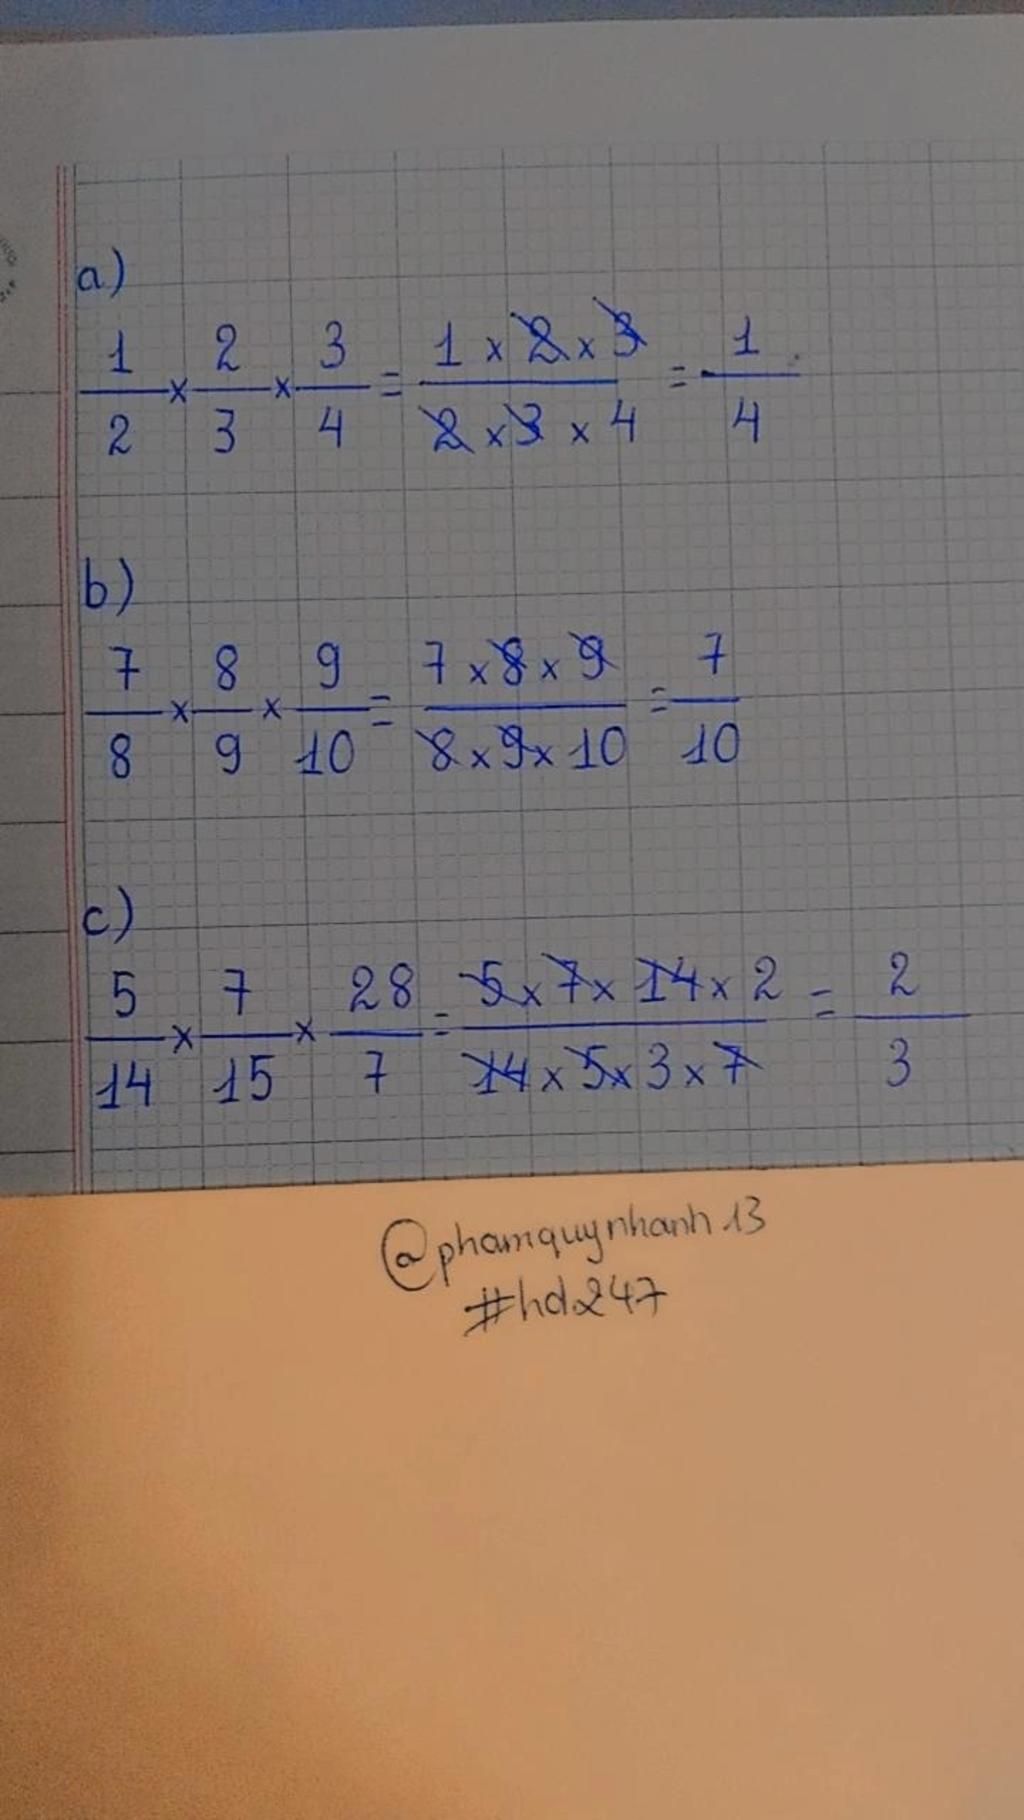 a)
1/2 × 2/3 × 3/4 = 1 × 2 × 3 / 2 × 3 × 4 = 1/4
b)
7/8 × 8/9 × 9/10 = 7 × 8 × 9 / 8 × 9 × 10 = 7/10
c)
5/14 × 7/15 × 28/7 = 5 × 7 × 14 × 2 / 14 × 5 × 3 × 7 = 2/3
@phamquynhanh13
#hd247